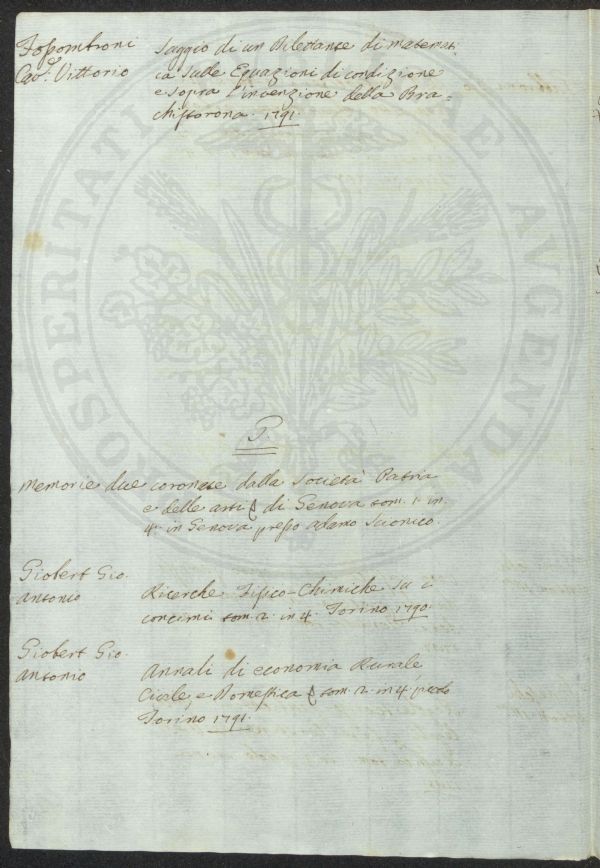 Fossombroni Saggio di un Diletante di matemati-
Cav.r Vittorio ca sulle Equazioni di condizione
e sopra l'invenzione della Bra=
chistorona. 1791.
G.
Memorie due coronate dalla Società Patria
e delle arti di Genova tom. 1. in
4. in Genova presso Adamo Scionico.
Giobert Gio.
Antonio Ricerche Fisico-Chimiche su i
concimi tom. 2. in 4. Torino 1790.
Giobert Gio.
Antonio Annali di economia Rurale,
Civile, e Domestica tom. 2. in 4. picolo
Torino 1791.
PROSPERITATI PUBLICAE AVGENDAE